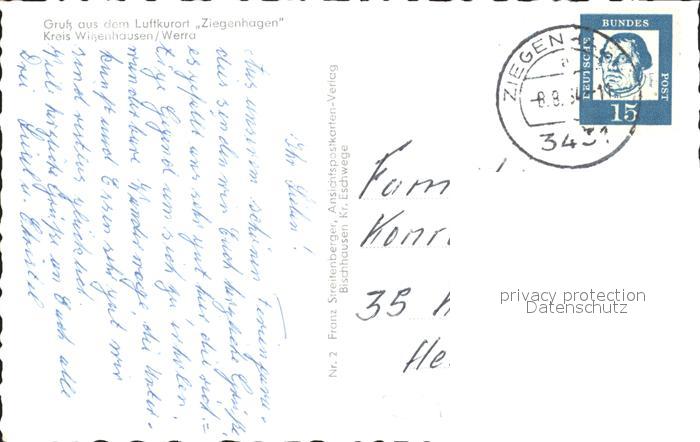 Gruß aus dem Luftkurort „Ziegenhagen"
Kreis Witzenhausen/Werra
Ihr Lieben!
Aus unserem schönen Ferienpara-
dies senden wir Euch herzliche Grüße
es gefällt uns sehr gut hier die rich-
tige Gegend um sich zu erholen.
wunderbare Wanderwege, die Unter-
kunft und Essen sehr gut wir
sind restlos glücklich.
Viele herzliche Grüße an Euch alle
Nr. 2 Franz Streitenberger, Ansichtspostkarten-Verlag
Bischhausen Kr. Eschwege
ZIEGEN
8.8.
3431
DEUTSCHE BUNDES POST
15
Fam
Konr
35
He
privacy protection
Datenschutz